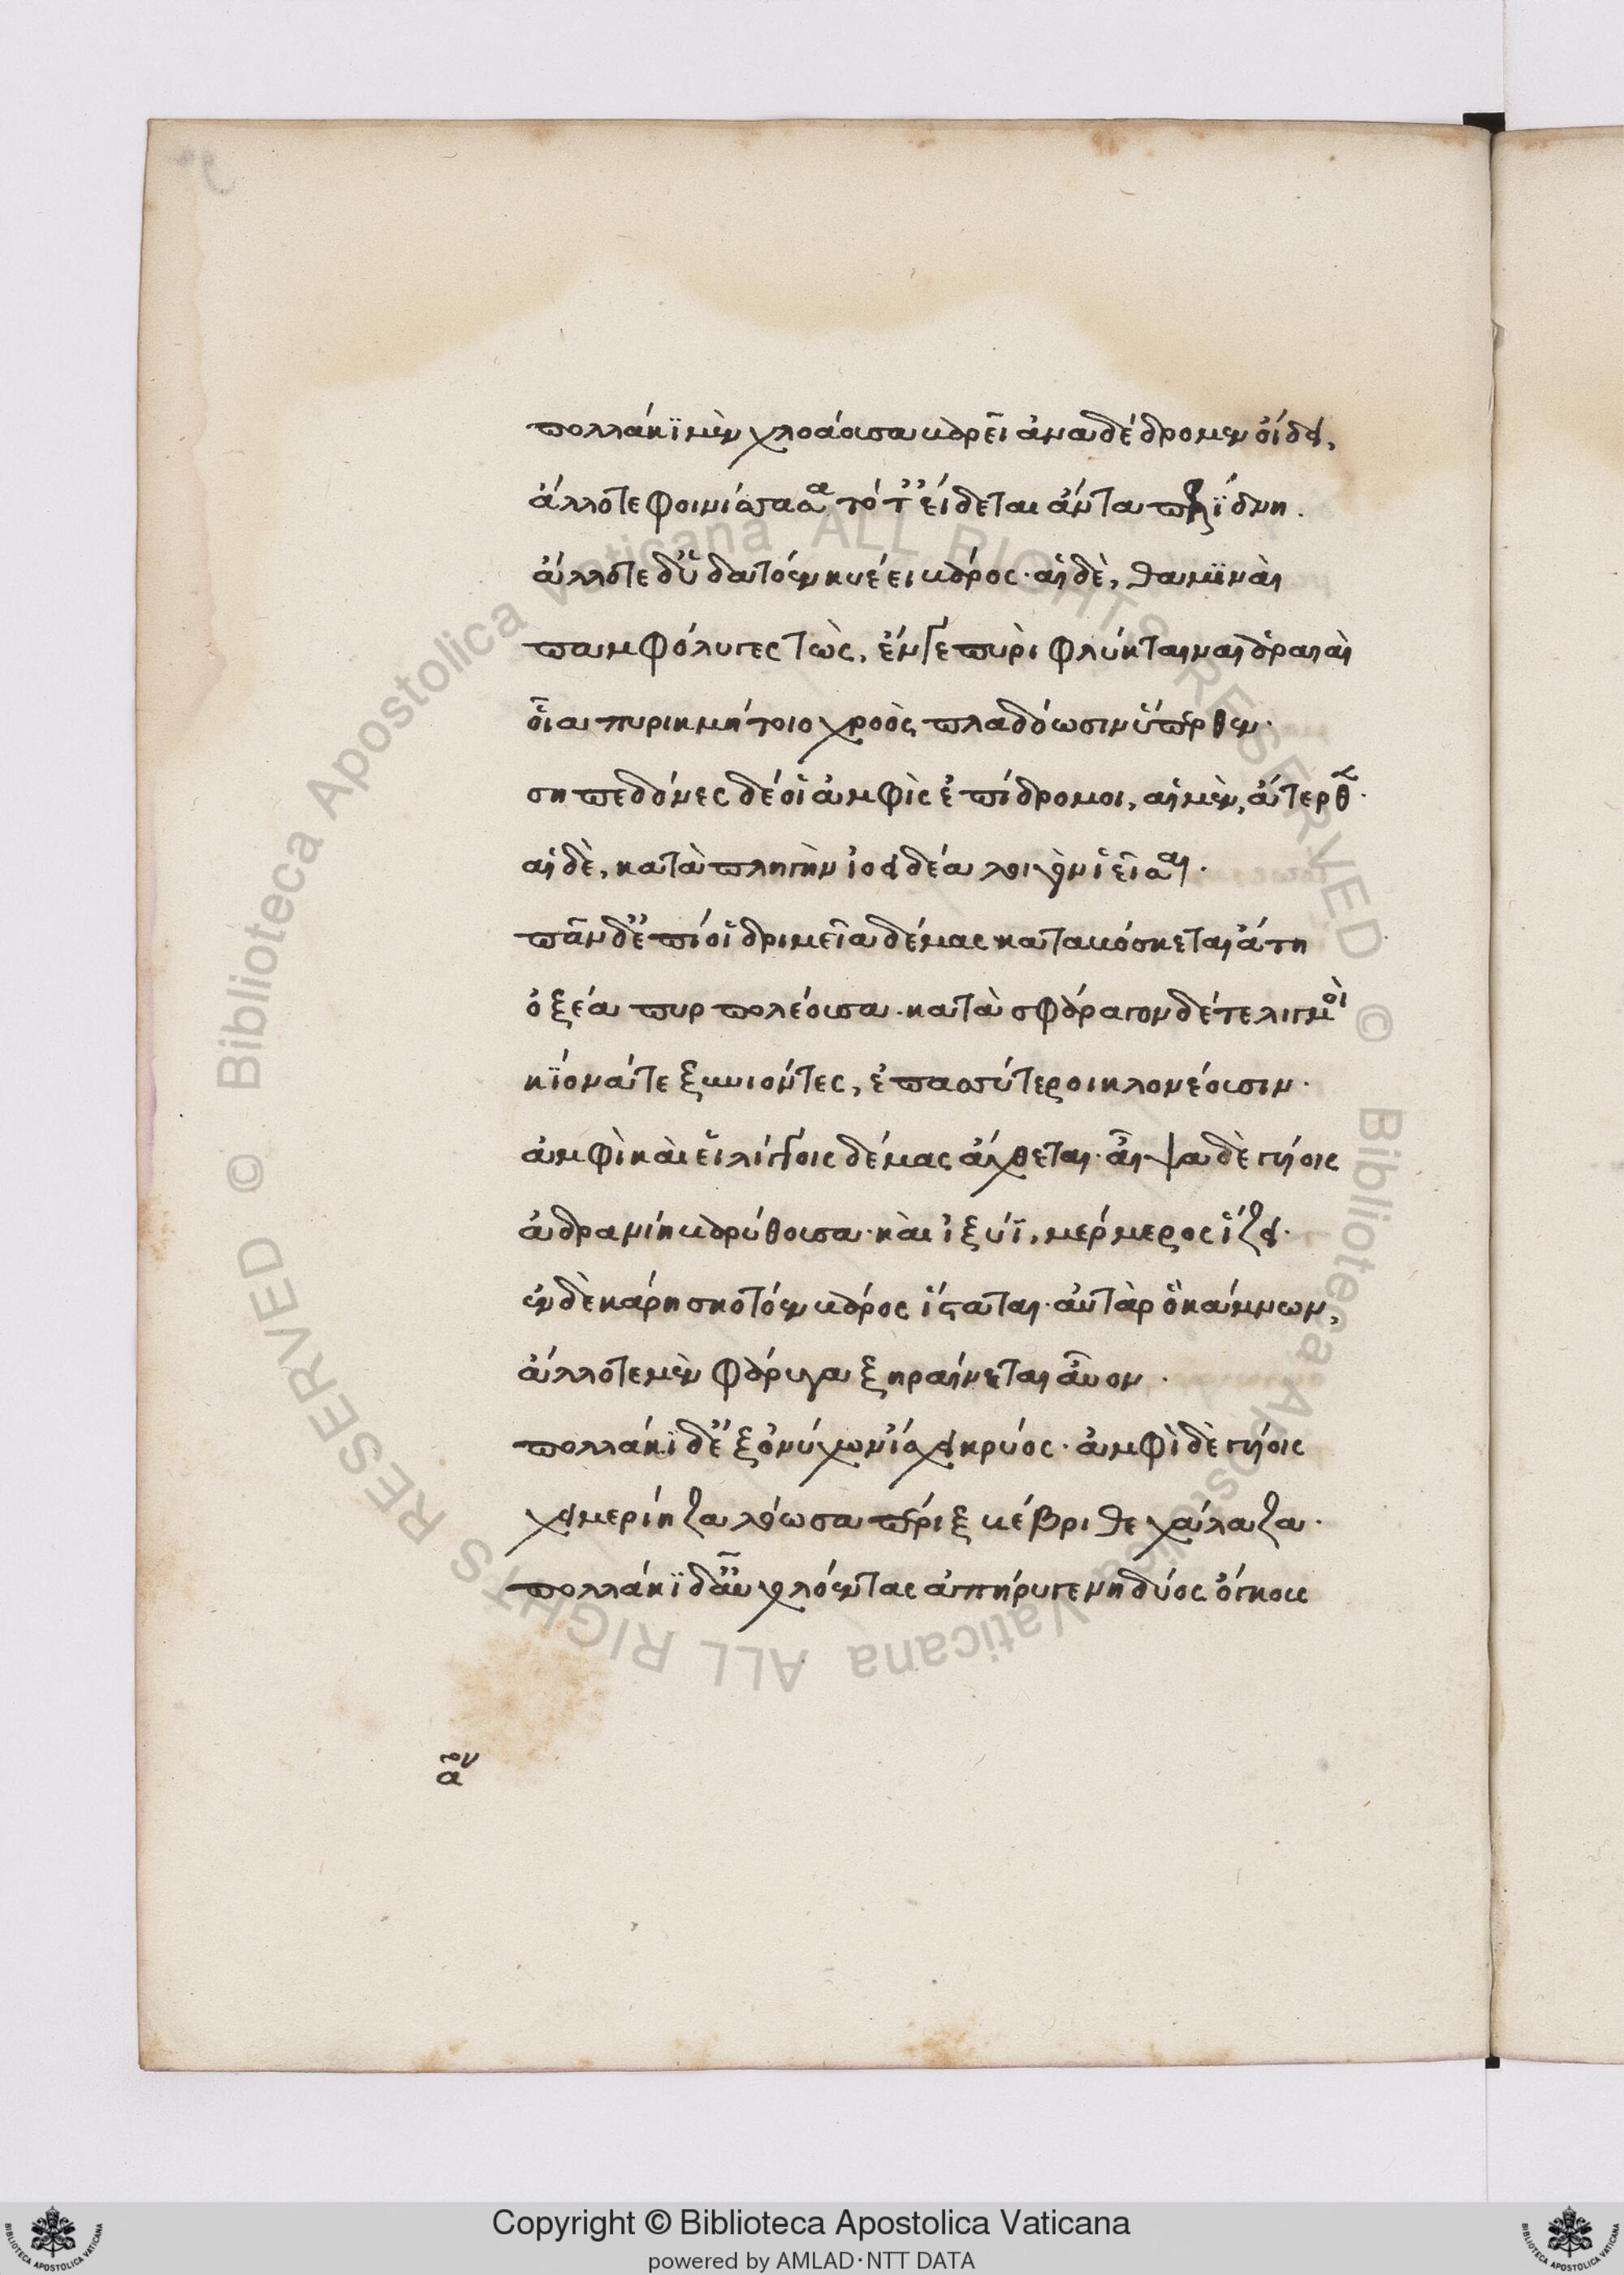 πολλάκϊ μὲν χλοάουσα βαρεῖ ἀναδέδρομεν οἴδει,
ἄλλοτε φοινίσσουσα τότ' εἴδεται ἄντα πελϊδνή.
ἄλλοτε δ' ὑδατόεν κυέει βάρος· αἱ δὲ, θαμϊναὶ
παμφόλυγες τὼς, ἔν γε πυρὶ φλύκταιναι ἀραιαὶ
οἷα πυρικμήτοιο χροὸς πλαδόωσιν ὕπερθεν·
σηπεδόνες δέ οἱ ἀμφὶς ἐπίδρομοι, αἱ μὲν, ἄτερθεν·
αἱ δὲ, κατὰ πληγὴν ἰοειδέα λοιγὸν ἱεῖσαι.
πᾶν δ' ἐπί οἱ δριμεῖα δέμας καταβόσκεται ἄτη
ὀξέα πυρπολέουσα. κατὰ σφάραγον δέ τε λιγμοὶ
κϊονά τε ξυνιόντες, ἐπασσύτεροι κλονέουσιν.
ἀμφὶ καὶ εἰλίγγοις δέμας ἄχθεται. αἶψα δὲ γυίοις
ἀδρανίη βαρύθουσα. καὶ ἰξύϊ, μέρμερος ἵζει.
ἐν δὲ κάρη σκοτόεν βάρος ἵσταται. αὐτὰρ ὁ κάμνων,
ἄλλοτε μὲν φάρυγα ξηραίνεται αὖον.
πολλάκϊ δ' ἐξ ὀνύχων ἴσχει κρύος. ἀμφὶ δὲ γυίοις
χειμερίη ζαλόωσα πέριξ βέβριθε χάλαζα.
πολλάκϊ δ' αὖ χολόεντας ἀπήρυγε νηδύος ὄγκους
Copyright © Biblioteca Apostolica Vaticana
powered by AMLAD·NTT DATA